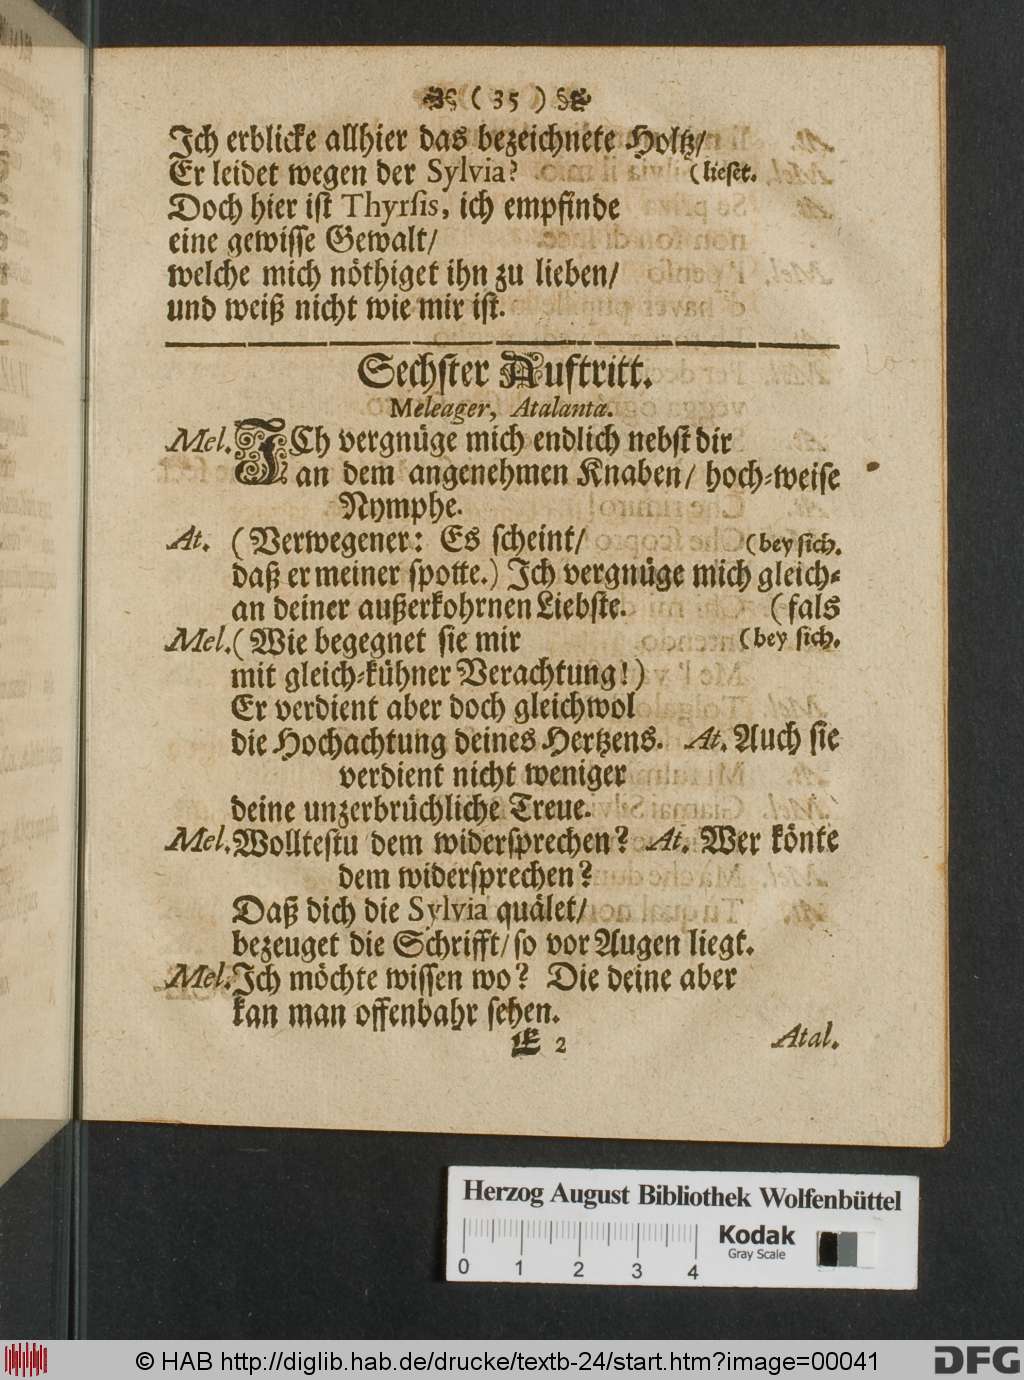 ( 35 )
Ich erblicke allhier das bezeichnete Holtz/
Er leidet wegen der Sylvia? (lieset.
Doch hier ist Thyrsis, ich empfinde
eine gewisse Gewalt/
welche mich nöthiget ihn zu lieben/
und weiß nicht wie mir ist.
Sechster Auftritt.
Meleager, Atalanta.
Mel. ICh vergnüge mich endlich nebst dir
an dem angenehmen Knaben/ hoch-weise
Nymphe.
At. (Verwegener: Es scheint/ (bey sich.
daß er meiner spotte.) Ich vergnüge mich gleich-
an deiner außerkohrnen Liebste. (fals
Mel. (Wie begegnet sie mir (bey sich.
mit gleich-kühner Verachtung!)
Er verdient aber doch gleichwol
die Hochachtung deines Hertzens. At. Auch sie
verdient nicht weniger
deine unzerbrüchliche Treue.
Mel. Wolltestu dem widersprechen? At. Wer könte
dem widersprechen?
Daß dich die Sylvia quälet/
bezeuget die Schrifft/ so vor Augen liegt.
Mel. Ich möchte wissen wo? Die deine aber
kan man offenbahr sehen.
E 2 Atal.
Herzog August Bibliothek Wolfenbüttel
Kodak
Gray Scale
0 1 2 3 4
© HAB http://diglib.hab.de/drucke/textb-24/start.htm?image=00041
DFG